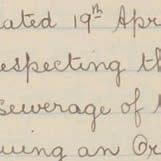 ated 19th Apr
especting th
sewerage of
uing an Or